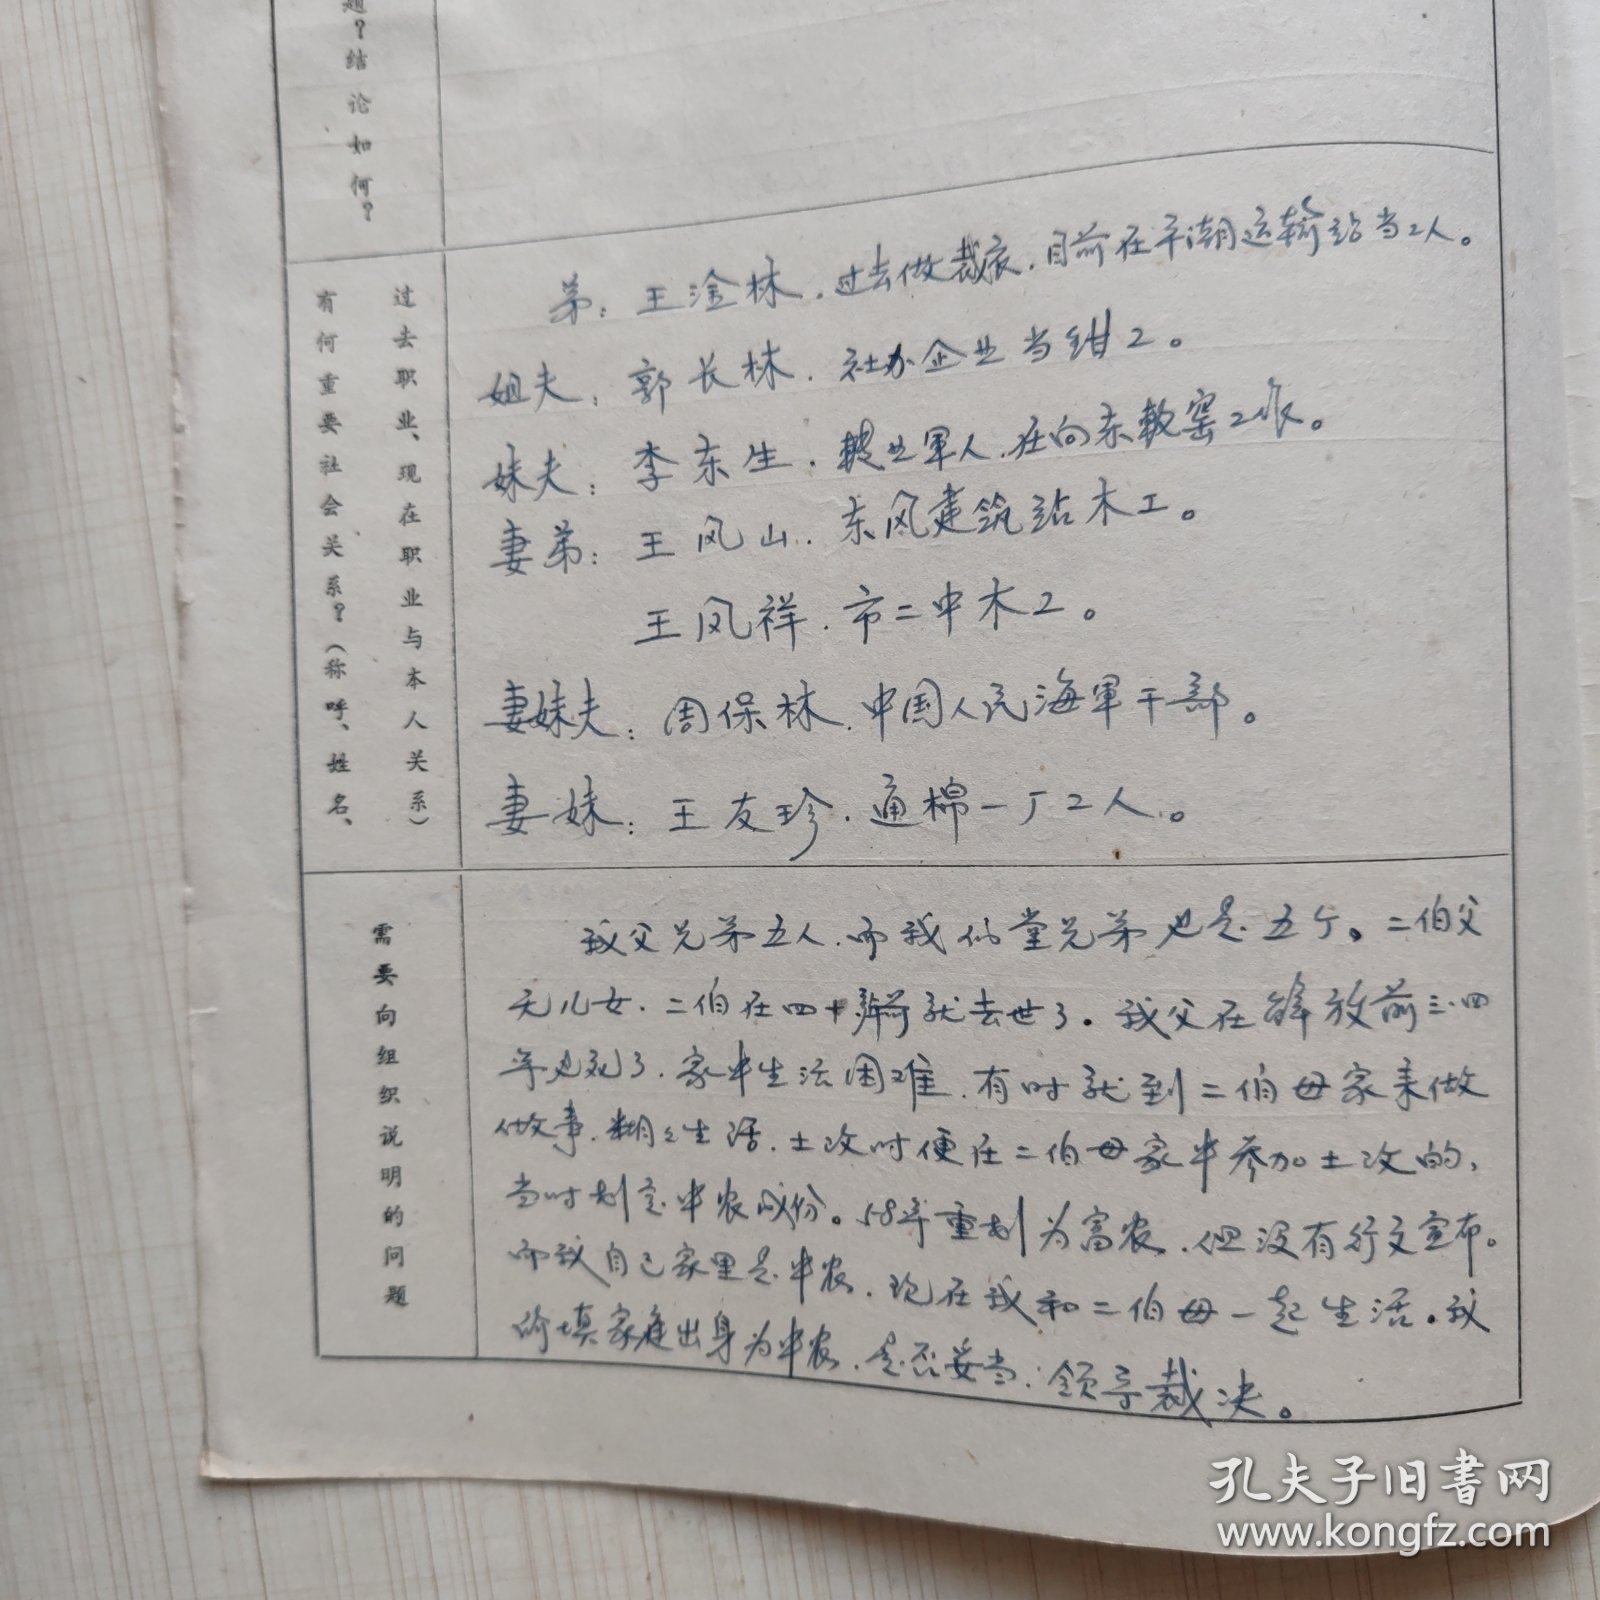 题？结论如何？
有何重要社会关系？（称呼、姓名、
过去职业、现在职业与本人关系）
弟：王淦林．过去做裁衣．目前在平潮运输站当工人。
姐夫：郭长林．社办企业当钳工。
妹夫：李东生．转业軍人．在向东轮窑工作。
妻弟：王风山．东风建筑站木工。
王风祥．市二中木工。
妻妹夫：周保林．中国人民海軍干部。
妻妹：王友珍．通棉一厂工人。
需要向组织说明的问题
我父兄弟五人．而我们堂兄弟也是五个。二伯父
无儿女．二伯在四十年前就去世了．我父在解放前三．四
年也死了．家中生活困难．有时就到二伯母家来做
做事．糊糊生活．土改时便在二伯母家中参加土改的，
当时划定中农成份。58年重划为富农．但没有行文宣布。
而我自己家里是中农．现在我和二伯母一起生活．我
所填家庭出身为中农．是否妥当．领导裁决。
孔夫子旧书网
www.kongfz.com